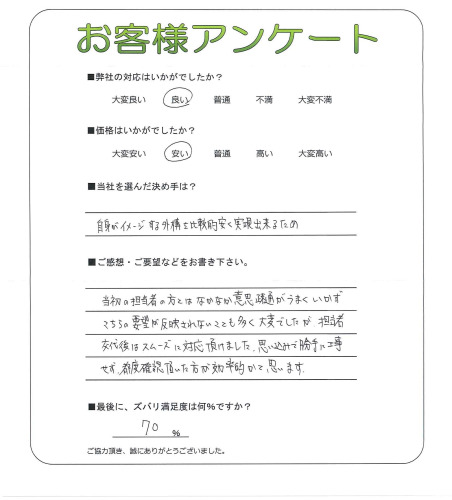 お客様アンケート
■弊社の対応はいかがでしたか？
大変良い 良い 普通 不満 大変不満
■価格はいかがでしたか？
大変安い 安い 普通 高い 大変高い
■当社を選んだ決め手は？
自身がイメージする外構を比較的安く実現出来るため
■ご感想・ご要望などをお書き下さい。
当初の担当者の方とはなかなか意思疎通がうまくいかず
こちらの要望が反映されないことも多く大変でしたが、担当者
交代後はスムーズに対応頂けました。思い込みで勝手に工事
せず、都度確認頂いた方が効率的かと思います。
■最後に、ズバリ満足度は何%ですか？
70 %
ご協力頂き、誠にありがとうございました。